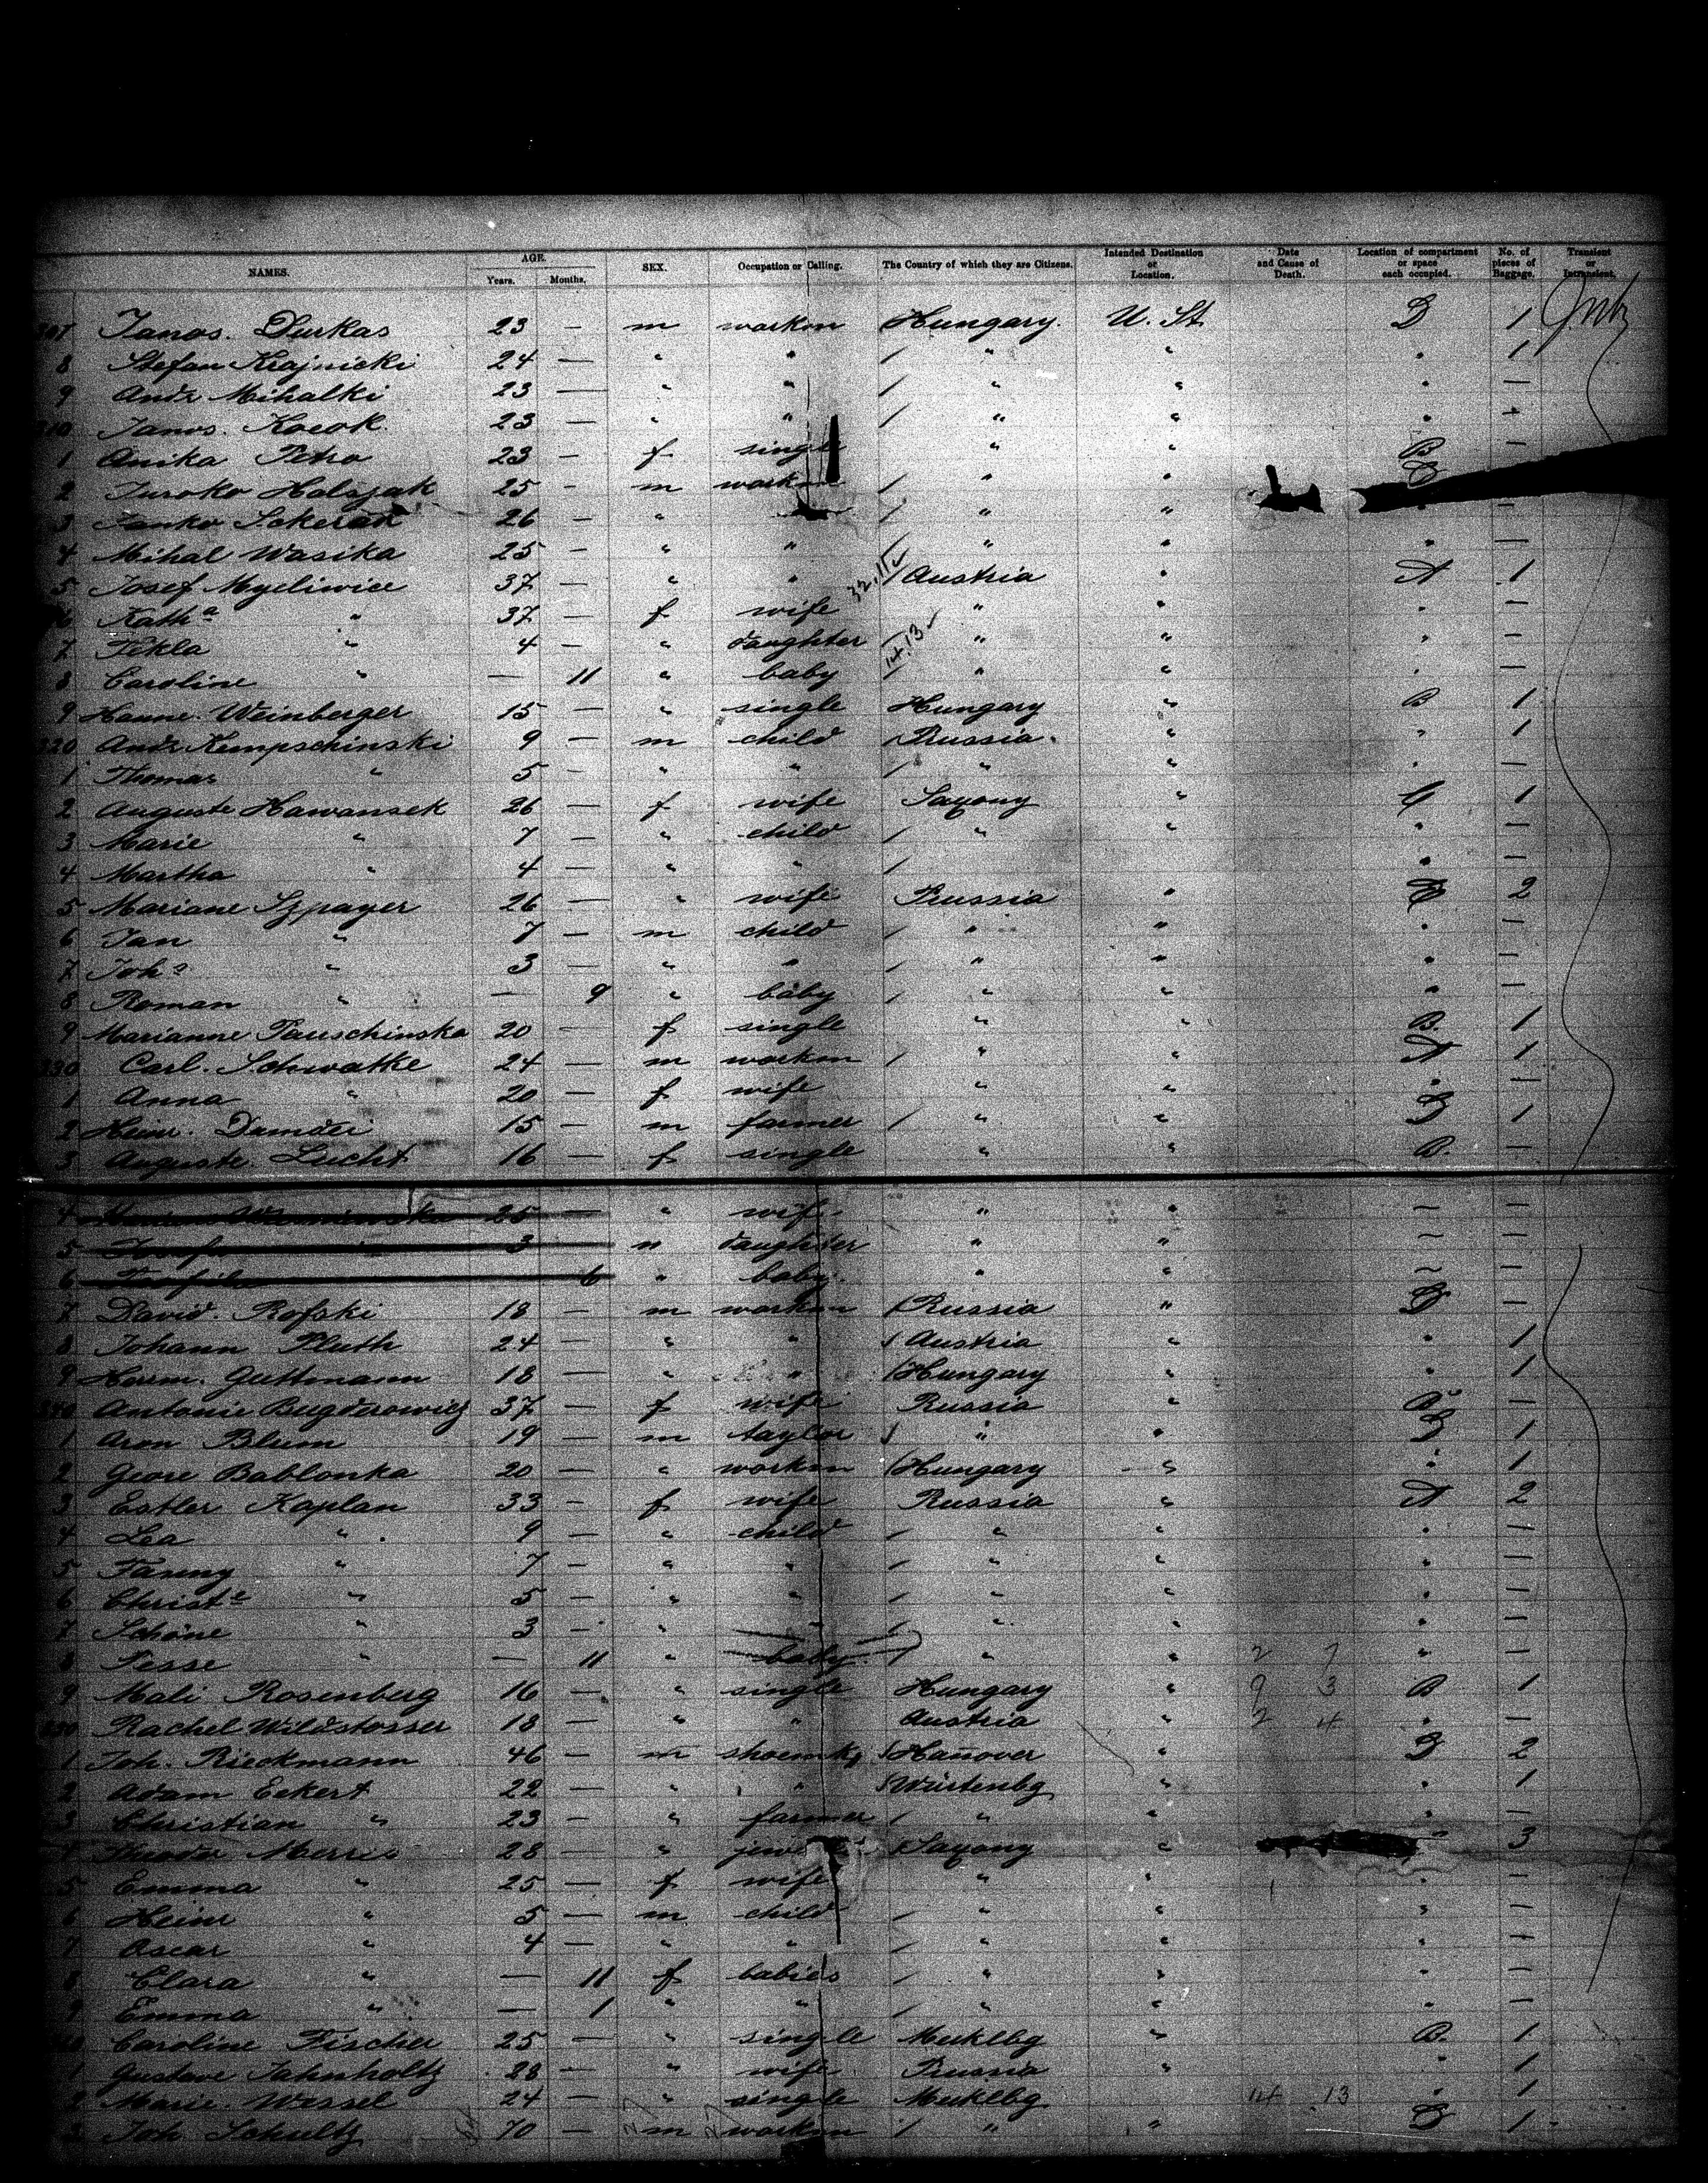 NAMES. AGE. Years. Months. SEX. Occupation or Calling. The Country of which they are Citizens. Intended Destination or Location. Date and Cause of Death. Location of compartment or space each occupied. No. of pieces of Baggage. Transient or Intransient.
307 Janos. Durkas 23 — m workm Hungary. U. St. D 1
8 Stefan Krajnicki 24 — " " " " " 1
9 Andr Mihalki 23 — " " " " " —
310 Janos. Kocok 23 — " " " " " —
1 Anika Petro 23 — f single " " B —
2 Juroko Halszak 25 - m workm " "
3 Janko Sckerak 26 — " " " —
4 Mihal Wasika 25 — " " " " " —
5 Josef Myeliwice 37 — " " Austria " A 1
6 Kath a " 37 — f wife " " " —
7 Tekla " 4 — " daughter " " " —
8 Caroline " — 11 " baby " " " —
9 Hanne. Weinberger 15 — " single Hungary " B 1
320 Andr Kempschinski 9 — m child Prussia. " " 1
1 Thomas " 5 — " " " " " —
2 Auguste Hawansek 26 — f wife Saxony " 1
3 Marie " 7 — " child " " " —
4 Martha " 4 — " " " —
5 Mariane Szpayer 26 — " wife Prussia " 2
6 Jan " 7 — m child " " " —
7 Joh s " 3 — " " " " " —
8 Roman " — 9 " baby " " " —
9 Marianne Pauschinska 20 — f single " " B. 1
330 Carl. Schwatke 24 — m workm " " A 1
1 Anna " 20 — f wife " " " —
2 Heinr. Damdei 15 — m farmer " " D 1
3 Auguste. Lucht 16 — f single " " B. —
4 25 — " wife " " — —
5 3 " daughter " " — —
6 6 " baby. " " — —
7 David. Rofski 18 — m workm Russia " D —
8 Johann Pluth 24 — " " Austria " " 1
9 Herm. Guttmann 18 — " " Hungary " " 1
340 Antonie Bugderowicz 37 — f wife Russia " B —
1 Aron Blum 19 — m taylor " " D 1
2 Geore Bablonka 20 — " workm Hungary " " 1
3 Estler Kaplan 33 — f wife Russia " A 2
4 Lea " 9 — " child " " " —
5 Fanny " 7 — " " " " " —
6 Christ e " 5 — " " " " " —
7 Schöne " 3 — " " " " " —
8 Jesse " — 11 " baby " " 2 7 " —
9 Mali Rosenberg 16 — " single Hungary " 9 3 B 1
350 Rachel Wildstosser 18 — " " Austria " 2 4 " —
1 Joh. Rieckmann 46 — m shoemkg Hanover " D 2
2 Adam Eckert 22 — " " Würtenbg " " 1
3 Christian " 23 — " farmer " " " —
4 Theodor 28 — " Saxony " " 3
5 Emma " 25 — f wife " " " —
6 Heinr " 5 — m child " " " —
7 Oscar " 4 — " " " " " —
8 Clara " — 11 f babies " " " —
9 Emma " — 1 " " " " " —
360 Caroline Fischer 25 — " single Meklbg " B. 1
1 Gustave Jahnholtz 28 — " wife Prussia " " 1
2 Marie. Wessel 24 — " single Meklbg 14 13 " 1
3 Joh Schultz 70 — m workm " " D 1